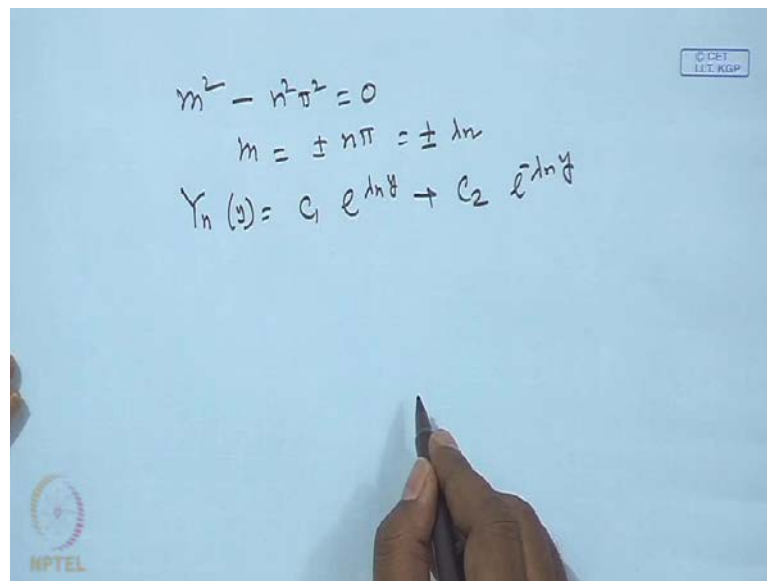 © CET
I.I.T. KGP
m² − n²π² = 0
m = ± nπ = ± λn
Yn (y) = C₁ e^λn y + C₂ e^-λn y
NPTEL